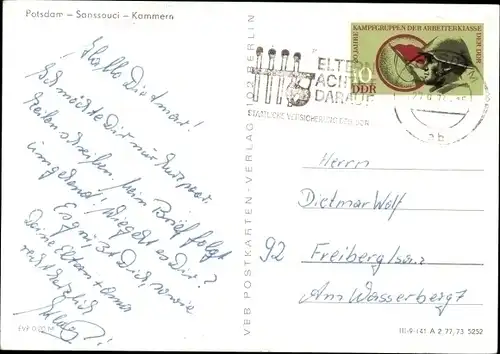 Potsdam – Sanssouci – Kammern
Hallo Dietmar!
ich möchte Dir nur kurz paar
Zeilen schreiben. Mein Brief folgt
umgehend! Wie geht es Dir?
Es grüßt Dich, sowie
Deine Eltern + Oma
recht herzlich
EVP 0,20 M
VEB POSTKARTEN-VERLAG 102 BERLIN
20 JAHRE KAMPFGRUPPEN DER ARBEITERKLASSE
DER DDR
10
DDR
ELTERN
ACHT
DARAUF
STAATLICHE VERSICHERUNG DER DDR
ab
Herrn
Dietmar Wolf
92 Freiberg/Sa.
Am Wasserberg 7
III-9-141 A 2 77,73 5252